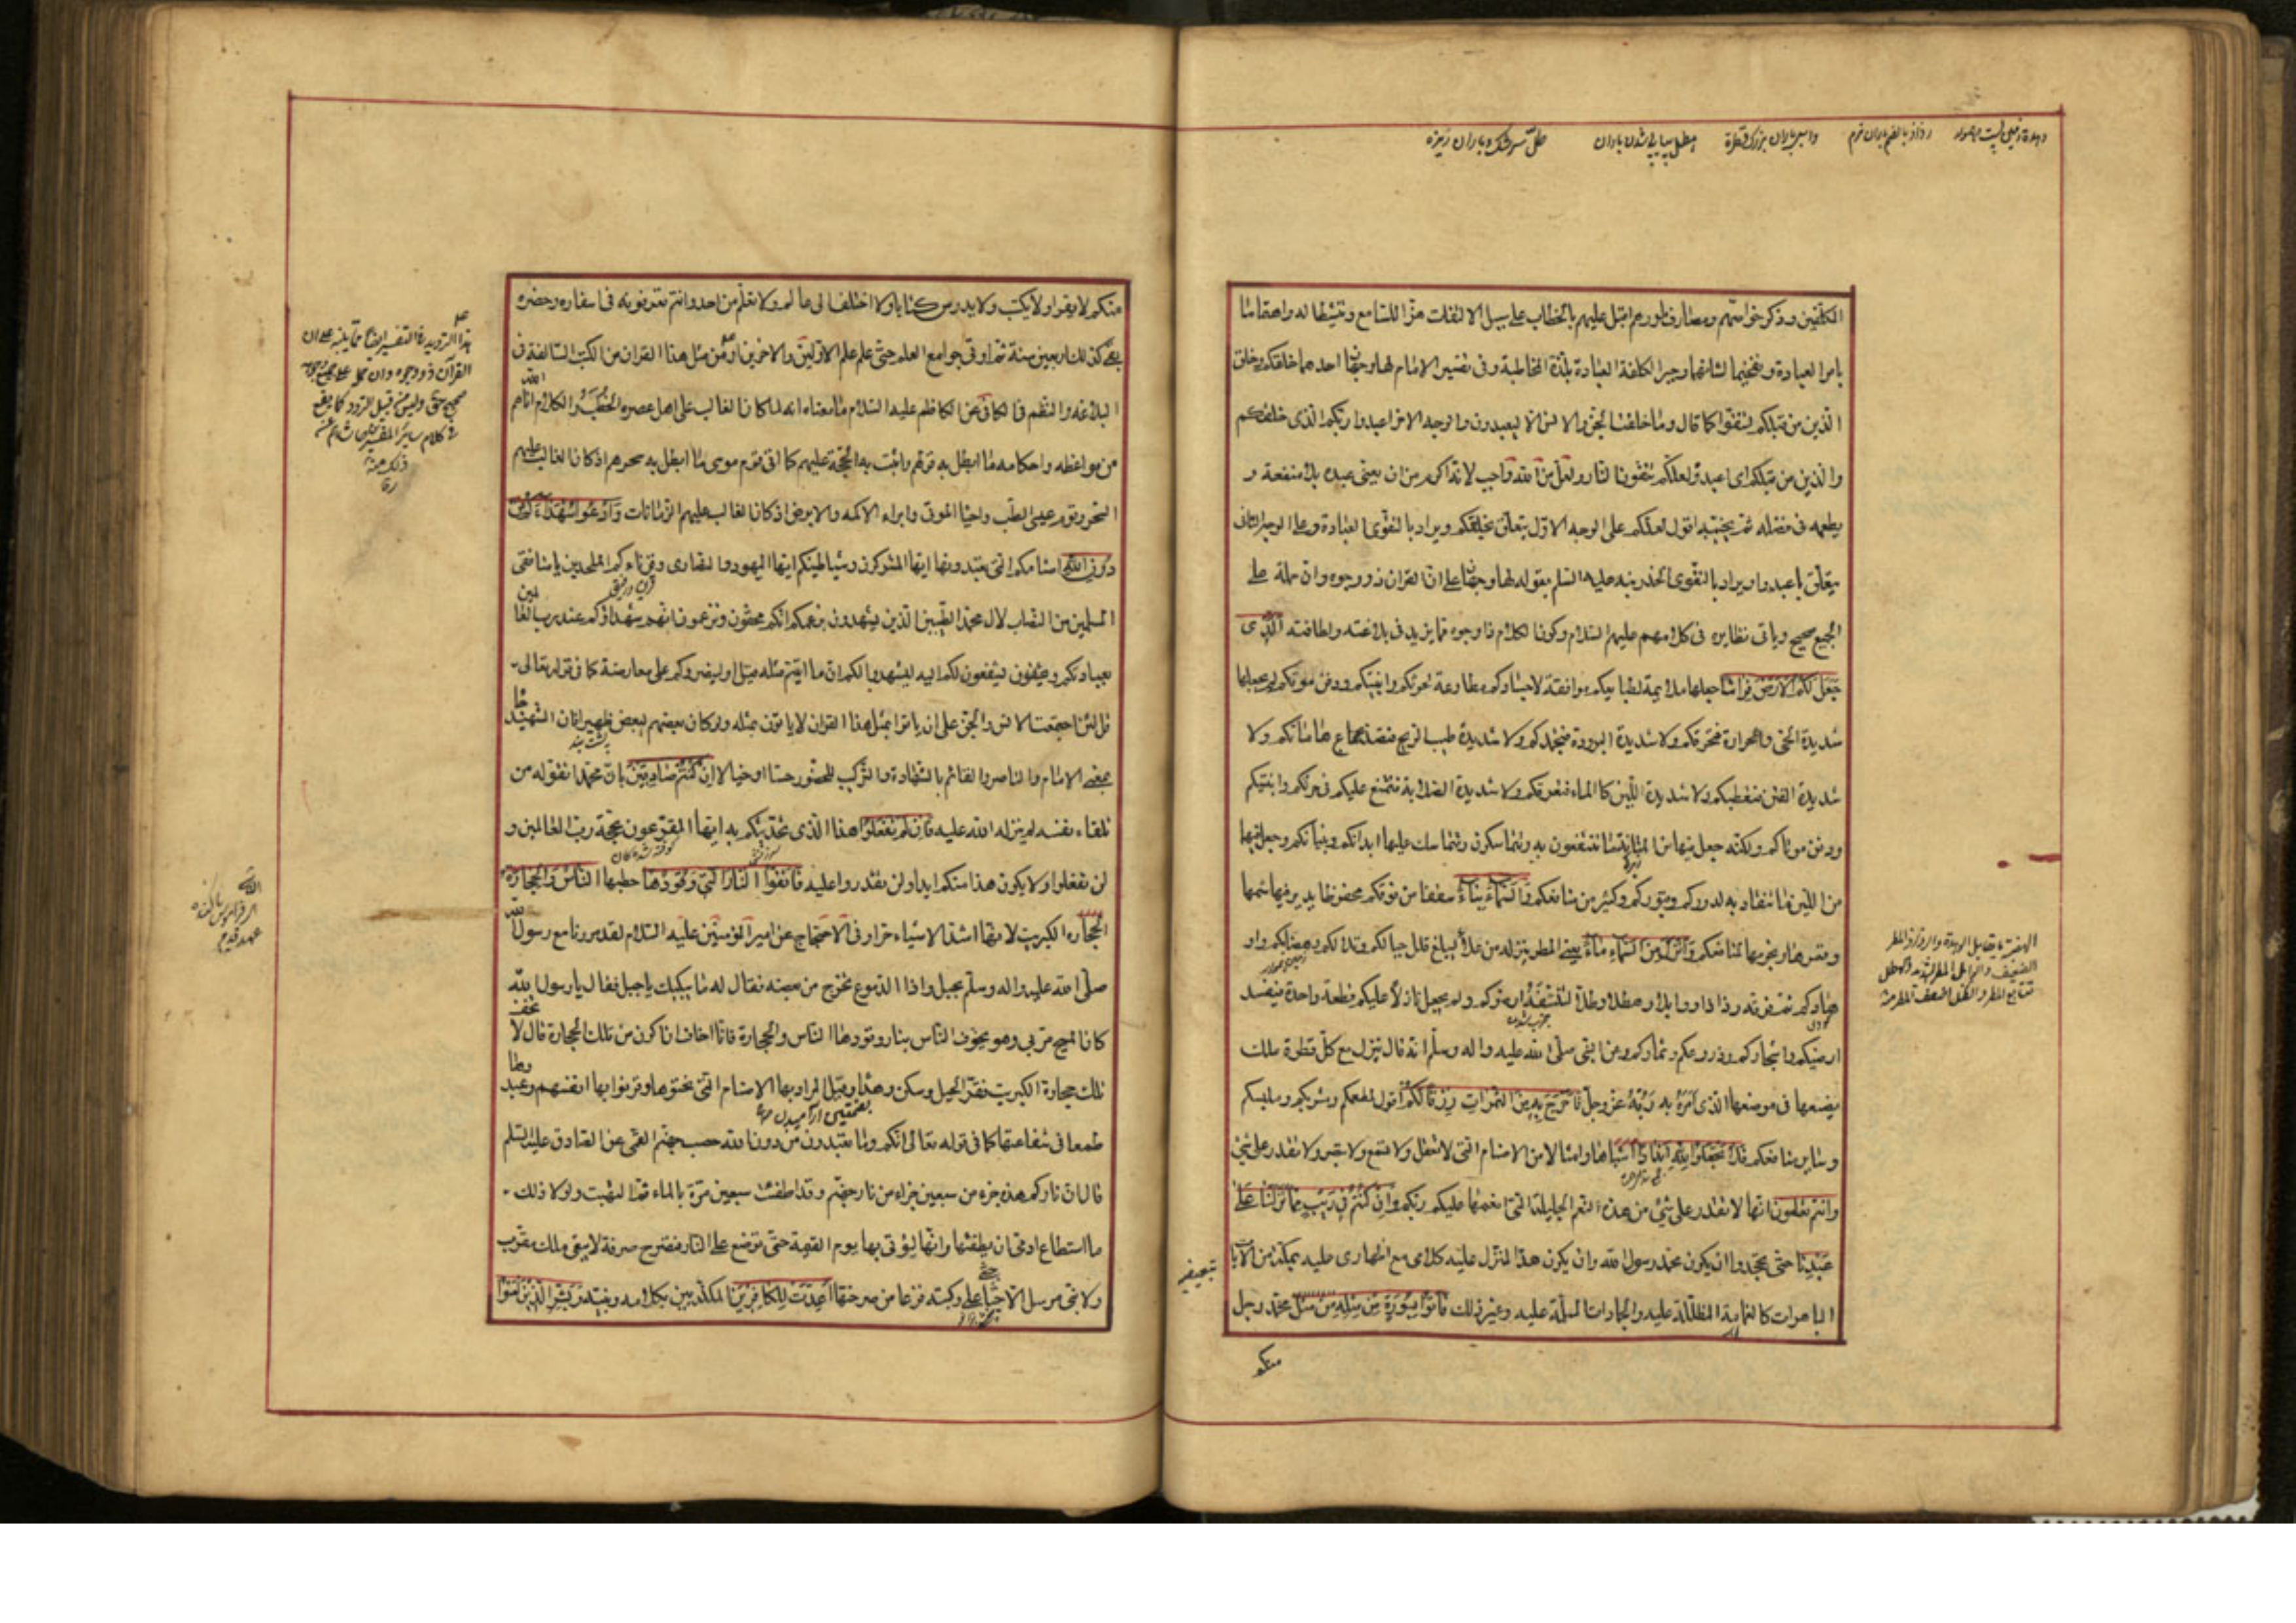 المكلفين وذكر خواصهم ومصارف امورهم اقبل عليهم بالخطاب على سبيل الالتفات هزا للسامع وتنشيطا له واهتماما
بامر العبادة وتفخيما لشانها وجبرا لكلفة العبادة بلذة المخاطبة وفي تفسير الامام لها وجهان احدهما خلقكم وخلق
الذين من قبلكم لتتقوا كما قال وما خلقت الجن والانس الا ليعبدون والوجه الاخر اعبدوا ربكم الذي خلقكم
والذين من قبلكم اي اعبدوه لعلكم تتقون النار ولعل من الله واجب لانه اكرم من ان يعني عبده بلا منفعة و
يطمعه في فضله ثم يخيبه اقول لعلكم على الوجه الاول يتعلق بخلقكم ويراد بالتقوى العبادة وعلى الوجه الثاني
يتعلق باعبدوا ويراد بالتقوى الحذر نبه عليه السلم بقوله لها وجهان على ان القران ذو وجوه وان حمله على
الجميع صحيح وياتي نظايره في كلامهم عليهم السلام وكون الكلام ذا وجوه مما يزيد في بلاغته ولطافته الذي
جعل لكم الارض فراشا جعلها ملايمة لطبايعكم موافقة لاجسادكم مطاوعة لحرثكم وابنيتكم ودفن موتكم لم يجعلها
شديدة الحمى والحرارة فتحرقكم ولا شديدة البرودة فتجمدكم ولا شديدة طيب الريح فتصدع هاماتكم ولا
شديدة النتن فتعطبكم ولا شديدة اللين كالماء فتغرقكم ولا شديدة الصلابة فتمتنع عليكم في حرثكم وابنيتكم
ودفن موتاكم ولكنه جعل فيها من المتانة ما تنتفعون به وتتماسكون وتتماسك عليها ابدانكم وبنيانكم وجعل فيها
من اللين ما تنقاد به لدوركم وقبوركم وكثير من منافعكم والسماء بناء سقفا من فوقكم محفوظا يدير فيها شمسها
وقمرها ونجومها لمنافعكم وانزل من السماء ماء يعني المطر ينزله من علا ليبلغ قلل جبالكم وتلالكم وهضابكم واو
هادكم ثم فرقه رذاذا ووابلا وهطلا وطلا لتنشفه ارضوكم ولم يجعل نازلا عليكم قطعة واحدة فيفسد
ارضيكم واشجاركم وزروعكم وثماركم وعن النبي صلى الله عليه واله وسلم انه قال ينزل مع كل قطرة ملك
يضعها في موضعها الذي امره به ربه عز وجل فاخرج به من الثمرات رزقا لكم اقول لمطعمكم ومشربكم وملبسكم
وساير منافعكم فلا تجعلوا لله اندادا اشباها وامثالا من الاصنام التي لا تعقل ولا تسمع ولا تبصر ولا تقدر على شئ
وانتم تعلمون انها لا تقدر على شئ من هذه النعم الجليلة التي انعمها عليكم ربكم وان كنتم في ريب مما نزلنا على
عبدنا حتى تجحدوا ان يكون محمد رسول الله وان يكون هذا المنزل عليه كلامي مع اظهاري عليه بمكة من الايات
الباهرات كالغمامة المظللة عليه والجمادات المسلمة عليه وغير ذلك فاتوا بسورة من مثله من مثل محمد رجل
منكم
منكم لا يقرا ولا يكتب ولا يدرس كتابا ولا اختلف الى عالم ولا تعلم من احد وانتم تعرفونه في اسفاره وحضره
بقي كذلك اربعين سنة ثم اوتي جوامع العلم حتى علم علم الاولين والاخرين او من مثل هذا القران من الكتب السالفة في
البلاغة والنظم في الكافي عن الكاظم عليه السلام ما معناه انه لما كان الغالب على اهل عصره الخطب والكلام اتاهم الله
من مواعظه واحكامه ما ابطل به قولهم واثبت به الحجة عليهم كما اتى قوم موسى ما ابطل به سحرهم اذ كان الغالب عليهم
السحر وقوم عيسى الطب واحياء الموتى وابراء الاكمه والابرص اذ كان الغالب عليهم الزمانات وادعوا شهداءكم من
دون الله اصنامكم التي تعبدونها ايها المشركون وشياطينكم ايها اليهود والنصارى وقرناءكم الملحدين يا منافقي
المسلمين من النصاب لال محمد الطيبين الذين يشهدون بزعمكم انكم محقون وتزعمون انهم شهداؤكم عند رب العالمين
بعبادتكم ويشفعون لكم اليه ليشهدوا لكم ان ما اتيتم مثله او لينصروكم على معارضته كما في قوله تعالى
قل لئن اجتمعت الانس والجن على ان ياتوا بمثل هذا القران لا ياتون بمثله ولو كان بعضهم لبعض ظهيرا فان الشهيد جاء
بمعنى الامام والناصر والقائم بالشهادة والتركيب للحضور حسا او خيالا ان كنتم صادقين بان محمدا تقوله من
تلقاء نفسه لم ينزله الله عليه فان لم تفعلوا هذا الذي تحديتكم به ايها المقرعون بحجة رب العالمين و
لن تفعلوا ولا يكون هذا منكم ابدا ولن تقدروا عليه فاتقوا النار التي وقودها حطبها الناس والحجارة
حجارة الكبريت لانها اشد الاشياء حرا وفي الاحتجاج عن امير المؤمنين عليه السلام لقد مررنا مع رسول الله
صلى الله عليه واله وسلم بجبل واذا الدموع تخرج من بعضه فقال له ما يبكيك يا جبل فقال يا رسول الله
كان المسيح مر بي وهو يخوف الناس بنار وقودها الناس والحجارة فانا اخاف ان اكون من تلك الحجارة قال لا تخف
تلك حجارة الكبريت فقر الجبل وسكن وهدا وقيل المراد بها الاصنام التي نحتوها وقرنوا بها انفسهم وعبدوها
طمعا في شفاعتها كما في قوله تعالى انكم وما تعبدون من دون الله حصب جهنم القمي عن الصادق عليه السلم
قال ان ناركم هذه جزء من سبعين جزء من نار جهنم وقد اطفئت سبعين مرة بالماء ثم التهبت ولولا ذلك
ما استطاع ادمي ان يطفئها وانها ليؤتى بها يوم القيمة حتى توضع على النار فتصرخ صرخة لا يبقى ملك مقرب
ولا نبي مرسل الا جثا على ركبتيه فزعا من صرختها اعدت للكافرين المكذبين بكلامه ونبيه وبشر الذين امنوا